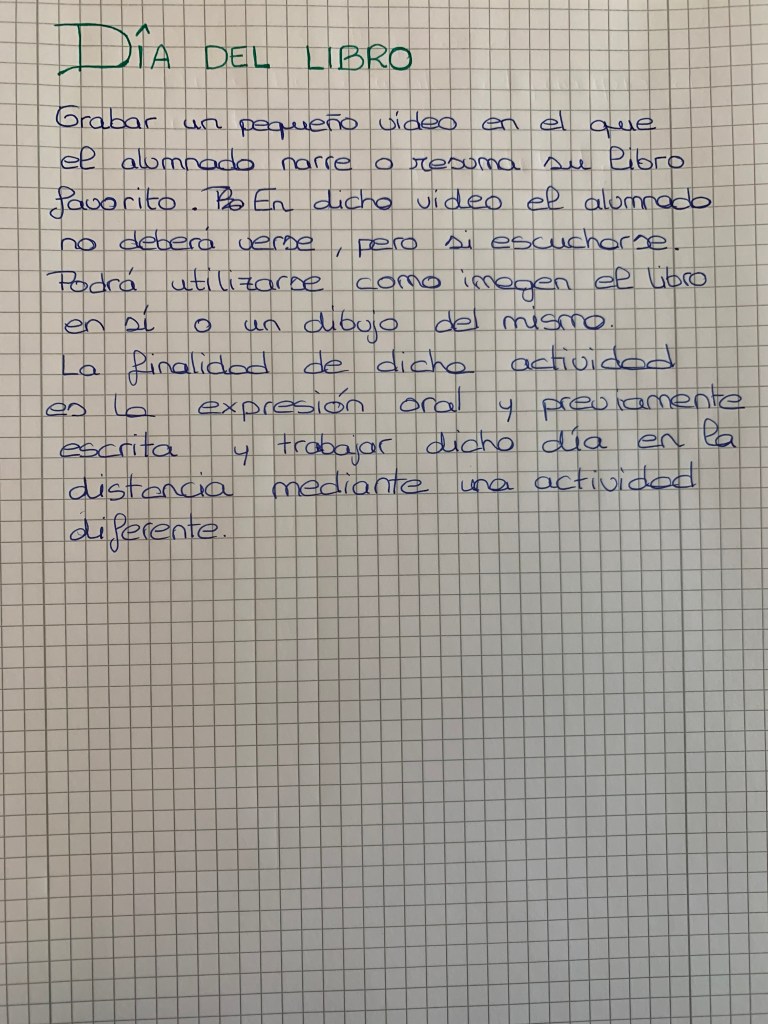 DÍA DEL LIBRO
Grabar un pequeño video en el que
el alumnado narre o resuma su libro
favorito. En dicho video el alumnado
no deberá verse, pero si escucharse.
Podrá utilizarse como imagen el libro
en sí o un dibujo del mismo.
La finalidad de dicha actividad
es la expresión oral y previamente
escrita y trabajar dicho día en la
distancia mediante una actividad
diferente.